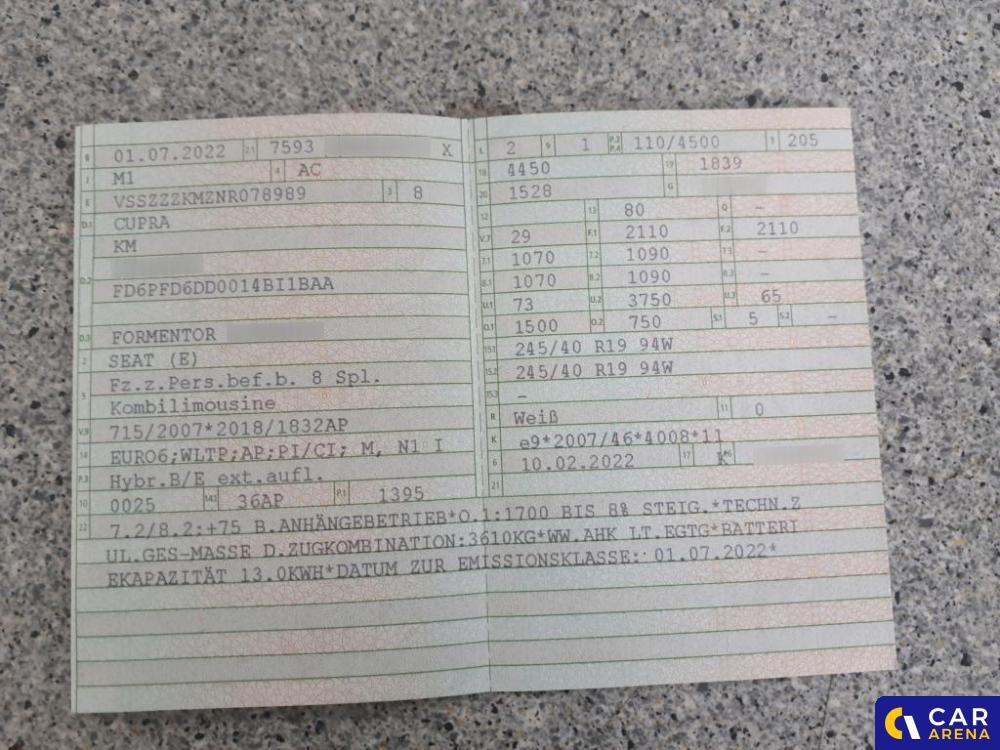 B 01.07.2022 2.1 7593 X
J M1 4 AC
E VSSZZZKMZNR078989 3 8
D.1 CUPRA
KM
D.2
FD6PFD6DD0014BI1BAA
D.3 FORMENTOR
2 SEAT (E)
5 Fz.z.Pers.bef.b. 8 Spl.
Kombilimousine
V.9 715/2007*2018/1832AP
14 EURO6;WLTP;AP;PI/CI; M, N1 I
P.3 Hybr.B/E ext.aufl.
10 0025 14.1 36AP P.1 1395
L 2 9 1 P.2 P.4 110/4500 T 205
18 4450 19 1839
20 1528 G
12 13 80 Q –
V.7 29 F.1 2110 F.2 2110
7.1 1070 7.2 1090 7.3 –
8.1 1070 8.2 1090 8.3 –
U.1 73 U.2 3750 U.3 65
O.1 1500 O.2 750 S.1 5 S.2 –
15.1 245/40 R19 94W
15.2 245/40 R19 94W
15.3 –
R Weiß 11 0
K e9*2007/46*4008*11
6 10.02.2022 17 K 16
21
22 7.2/8.2:+75 B.ANHÄNGEBETRIEB*O.1:1700 BIS 8% STEIG.*TECHN.Z
UL.GES-MASSE D.ZUGKOMBINATION:3610KG*WW.AHK LT.EGTG*BATTERI
EKAPAZITÄT 13.0KWH*DATUM ZUR EMISSIONSKLASSE: 01.07.2022*
CAR
ARENA